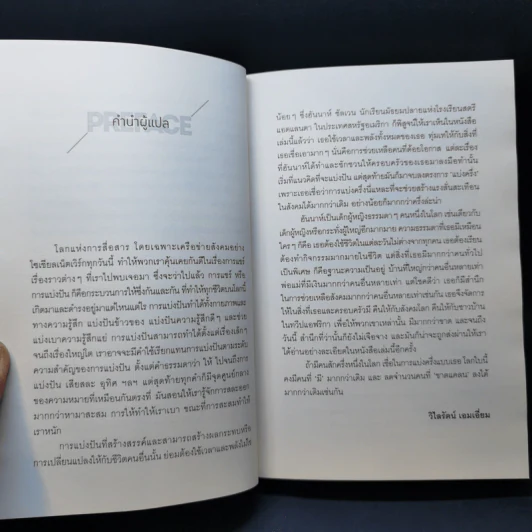 PREFACE
คำนำผู้แปล
โลกแห่งการสื่อสาร โดยเฉพาะเครือข่ายสังคมอย่าง
โซเชียลเน็ตเวิร์กทุกวันนี้ ทำให้พวกเราคุ้นเคยกันดีในเรื่องการแชร์
เรื่องราวต่างๆ ที่เราไปพบเจอมา ซึ่งจะว่าไปแล้ว การแชร์ หรือ
การแบ่งปัน ก็คือกระบวนการให้ซึ่งกันและกัน ที่ทำให้ทุกชีวิตบนโลกนี้
เกิดมาและดำรงอยู่มาแต่ไหนแต่ไร การแบ่งปันทำได้ทั้งกายภาพและ
ทางความรู้สึก แบ่งปันข้าวของ แบ่งปันความรู้สึกดีๆ และช่วย
แบ่งเบาความรู้สึกแย่ การแบ่งปันสามารถทำได้ตั้งแต่เรื่องเล็กๆ
จนถึงเรื่องใหญ่โต เราอาจจะมีคำใช้เรียกแทนการแบ่งปันตามระดับ
ความสำคัญของการแบ่งปัน ตั้งแต่คำธรรมดาว่า ให้ ไปจนถึงการ
แบ่งปัน เสียสละ อุทิศ ฯลฯ แต่สุดท้ายทุกคำก็มีจุดศูนย์กลาง
ของความหมายที่เหมือนกันตรงที่ มันสอนให้เรารู้จักการสละออก
มากกว่าหามาสะสม การให้ทำให้เราเบา ขณะที่การสะสมทำให้
เราหนัก
การแบ่งปันที่สร้างสรรค์และสามารถสร้างผลกระทบหรือ
การเปลี่ยนแปลงให้กับชีวิตคนอื่นนั้น ย่อมต้องใช้เวลาและพลังไม่ใช่
น้อยๆ ซึ่งฮันนาห์ ซัลเวน นักเรียนมัธยมปลายแห่งโรงเรียนสตรี
แอตแลนตา ในประเทศสหรัฐอเมริกา ก็พิสูจน์ให้เราเห็นในหนังสือ
เล่มนี้แล้วว่า เธอใช้เวลาและพลังทั้งหมดของเธอ ทุ่มเทให้กับสิ่งที่
เธอเชื่อเอามากๆ นั่นคือการช่วยเหลือคนที่ด้อยโอกาส แต่ละเรื่อง
ที่ฮันนาห์ได้ทำและชักชวนให้ครอบครัวของเธอมาลงมือทำนั้น
เริ่มที่แนวคิดที่จะแบ่งปัน แต่สุดท้ายมันก็มาจบลงตรงการ 'แบ่งครึ่ง'
เพราะเธอเชื่อว่าการแบ่งครึ่งนี่แหละที่จะช่วยสร้างแรงสั่นสะเทือน
ในสังคมได้มากกว่าเดิม อย่างน้อยก็มากกว่าครึ่งล่ะน่า
ฮันนาห์เป็นเด็กผู้หญิงธรรมดาๆ คนหนึ่งในโลก เช่นเดียวกับ
เด็กผู้หญิงหรือกระทั่งผู้ใหญ่อีกมากมาย ความธรรมดาที่เธอมีเหมือน
ใครๆ ก็คือ เธอใช้ชีวิตในแต่ละวันไม่ต่างจากทุกคน เธอต้องเรียน
ต้องทำกิจกรรมมากมายในชีวิต แต่สิ่งที่เธอมีมากกว่าคนทั่วไป
เป็นพิเศษ ก็คือฐานะความเป็นอยู่ บ้านที่ใหญ่กว่าคนอื่นหลายเท่า
พ่อแม่ที่มีเงินมากกว่าคนอื่นหลายเท่า แต่โชคดีว่า เธอก็มีสำนึก
ในการช่วยเหลือสังคมมากกว่าคนอื่นหลายเท่าเช่นกัน เธอจึงจัดการ
ให้ในสิ่งที่เธอและครอบครัวมี คืนให้กับสังคมโลก คืนให้กับชาวบ้าน
ในทวีปแอฟริกา เพื่อให้พวกเขาเหล่านั้น มีมากกว่าขาด และจนถึง
วันนี้ สำนึกที่ว่านั้นก็ยังไม่เจือจาง และมันก็น่าจะถูกส่งผ่านให้เรา
ได้อ่านอย่างละเอียดในหนังสือเล่มนี้อีกครั้ง
ถ้ามีคนสักครึ่งหนึ่งในโลก เชื่อในการแบ่งครึ่งแบบเธอ โลกใบนี้
คงมีคนที่ 'มี' มากกว่าเดิม และ ลดจำนวนคนที่ 'ขาดแคลน' ลงได้
มากกว่าเดิมเช่นกัน
วิไลรัตน์ เอมเอี่ยม